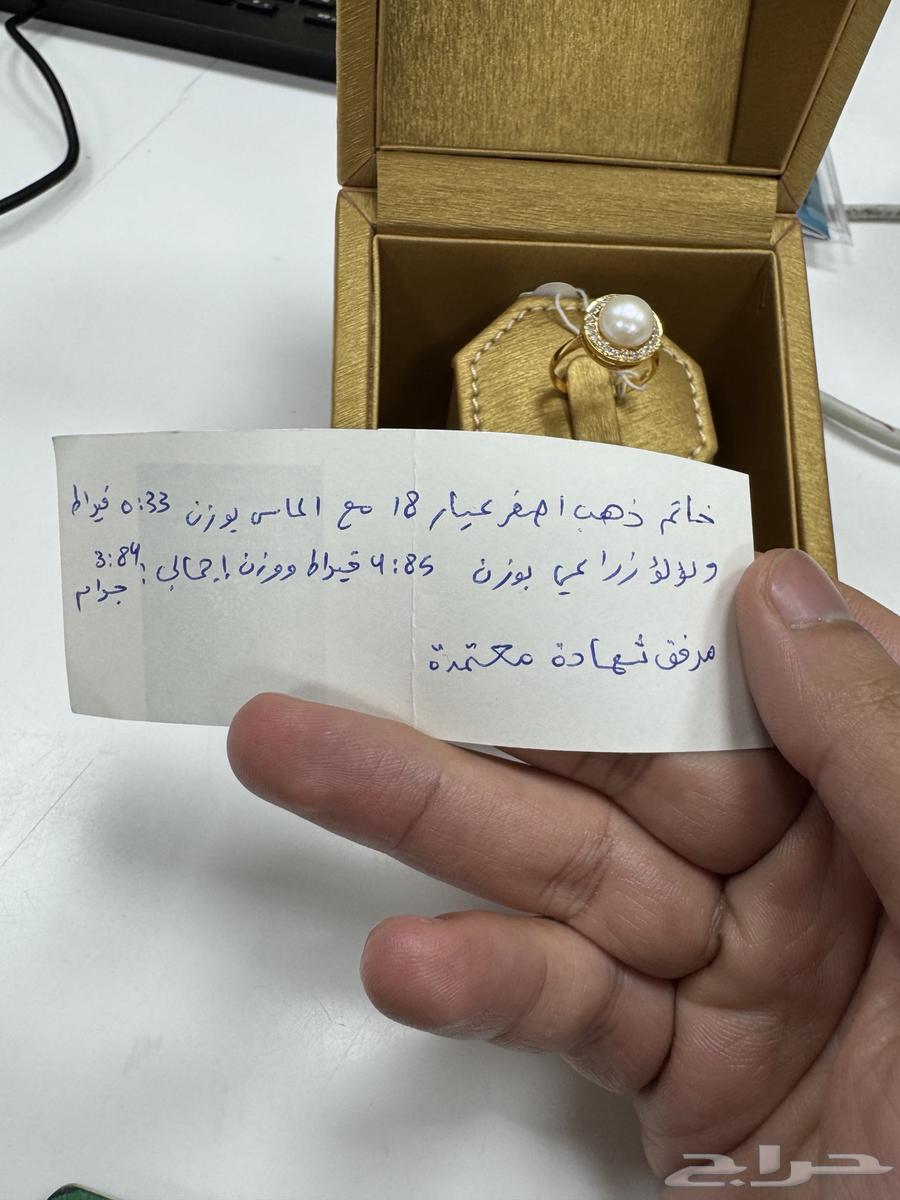 خاتم ذهب اصفر عيار 18 مع الماس بوزن 0:33 قيراط
ولؤلؤ زراعي بوزن 4:85 قيراط ووزن إجمالي : 3:84 جرام
مرفق شهادة معتمدة
حراج